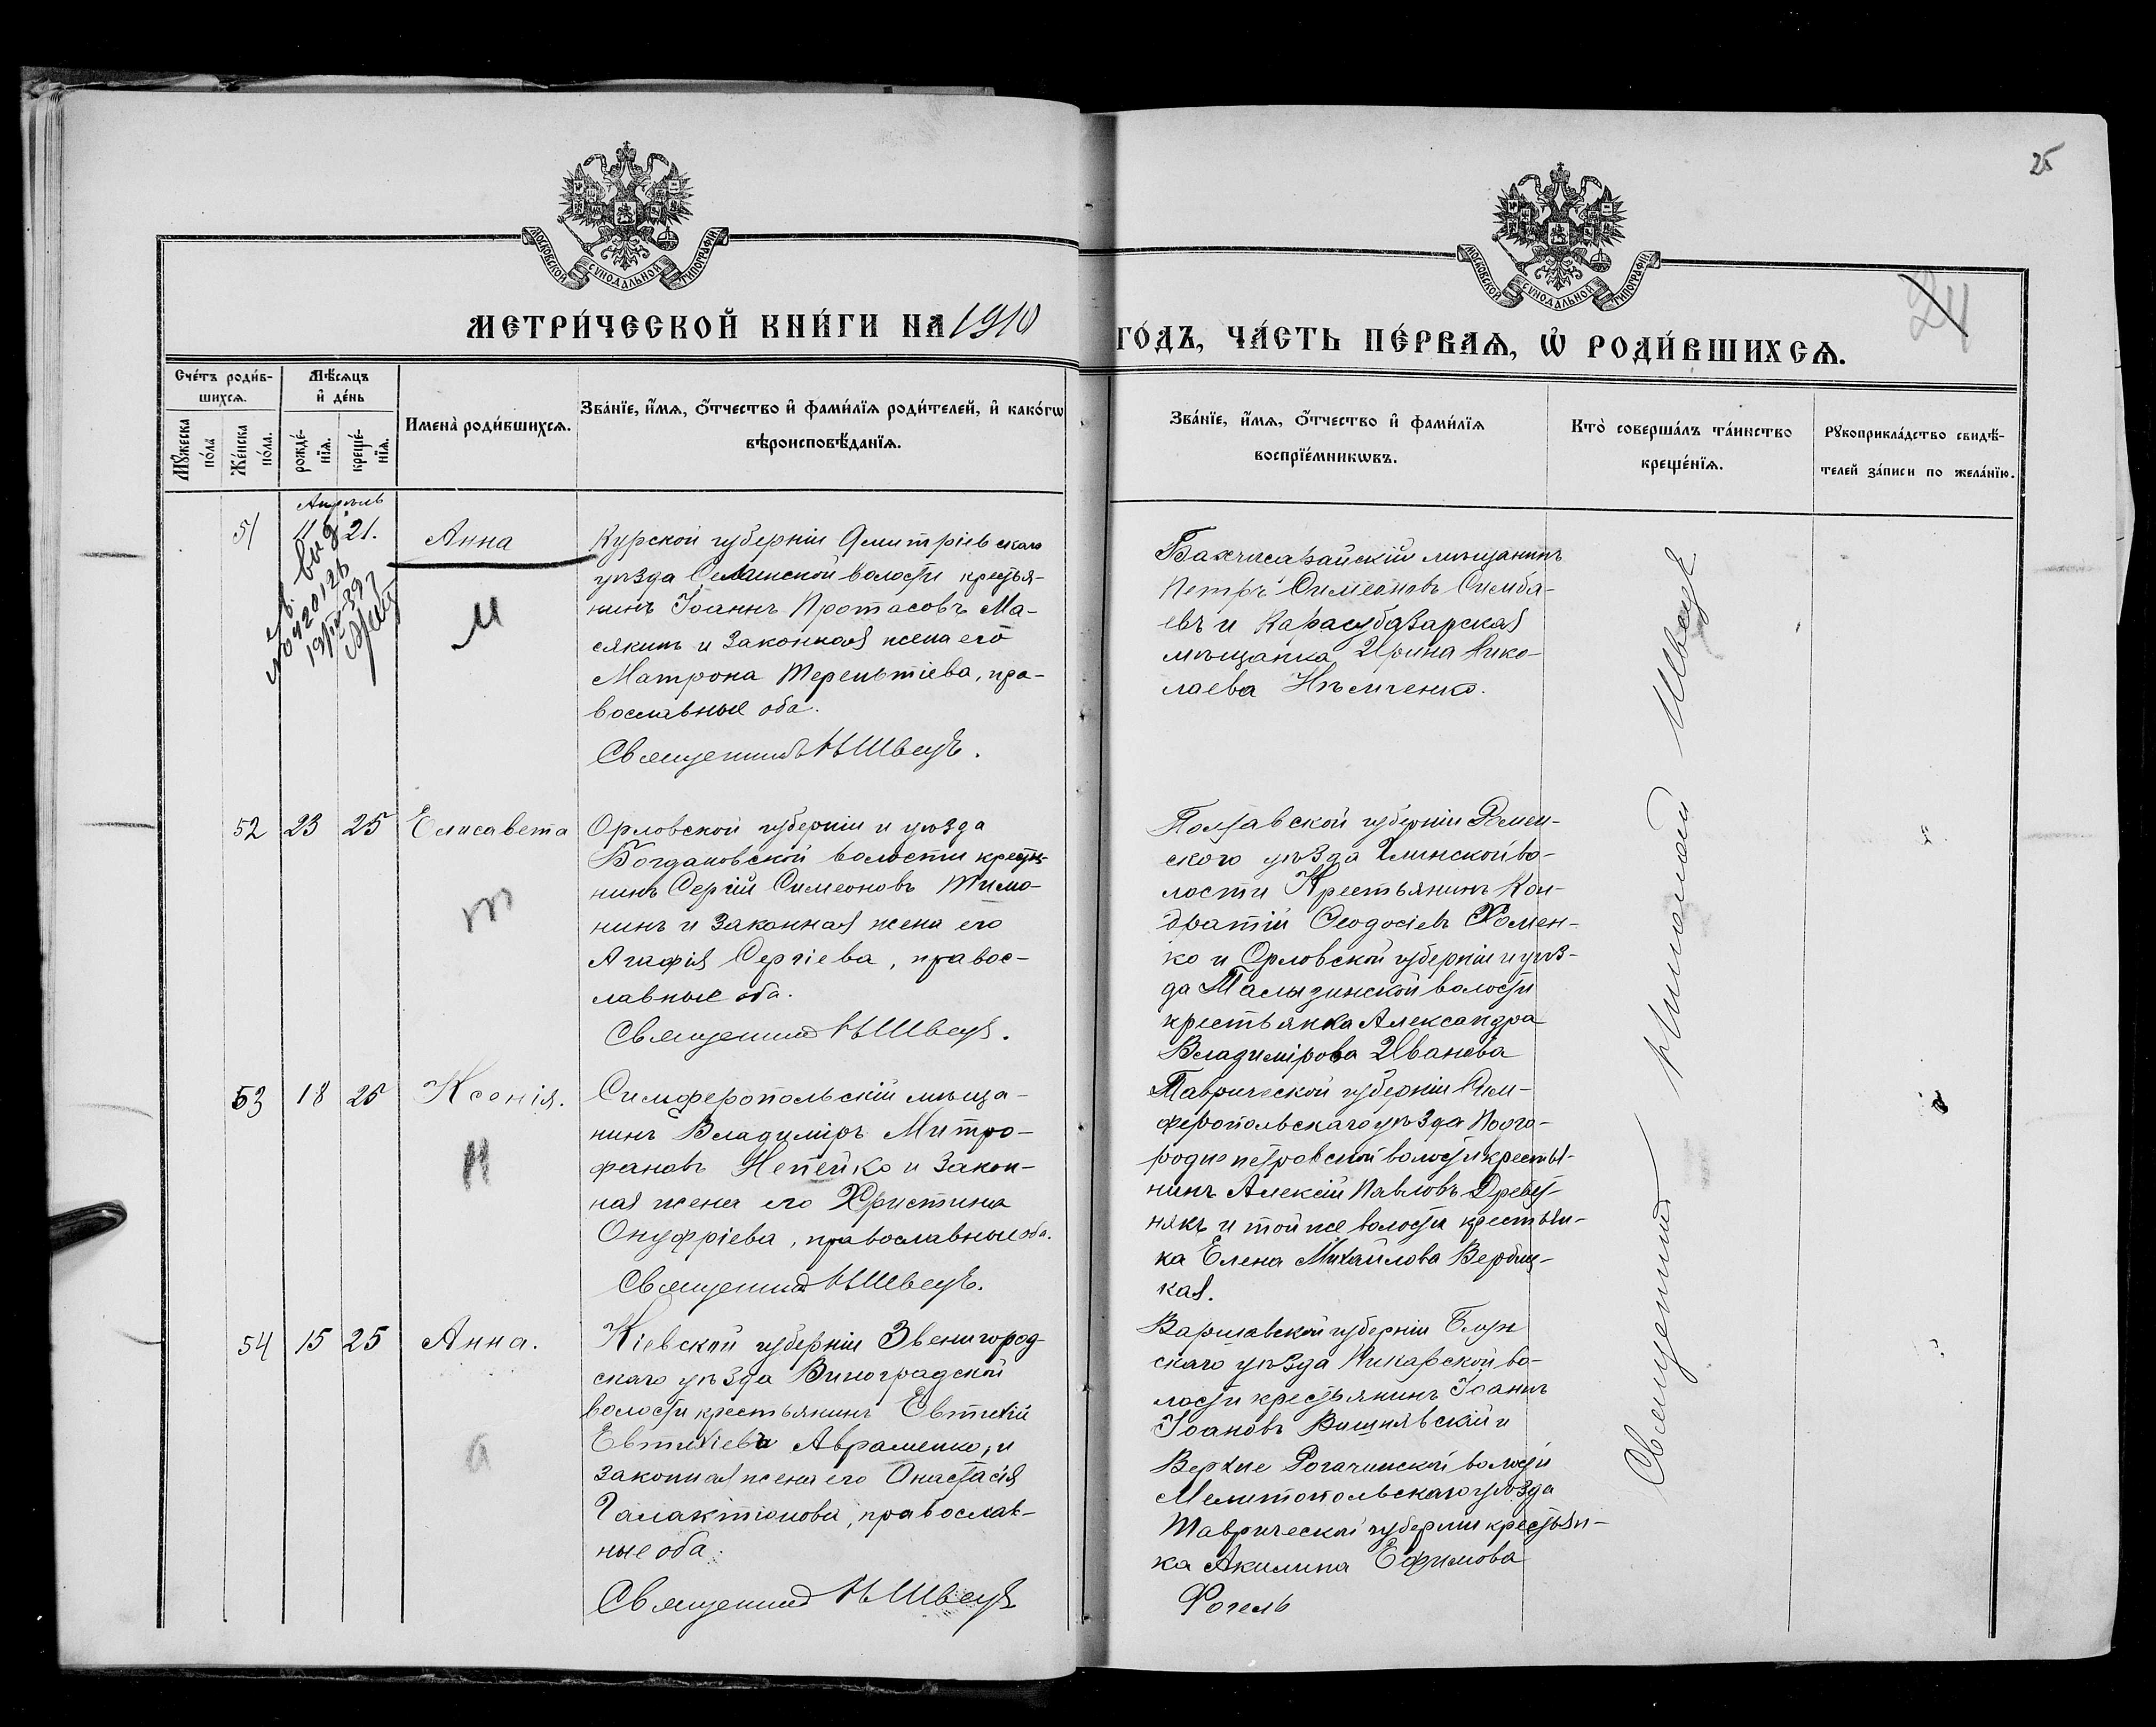 25
МОСКОВСКОЙ СУНОДАЛЬНОЙ ТИПОГРАФІИ
МОСКОВСКОЙ СУНОДАЛЬНОЙ ТИПОГРАФІИ
МЕТРИ́ЧЕСКОЙ КНИ́ГИ НА 1910
ГО́ДЪ, ЧА́СТЬ ПЕ́РВАѦ, Ѡ҆ РОДИ́ВШИХСѦ.
24
Сче́тъ роди́в-
шихсѧ.
Мꙋ́жеска по́ла
Же́нска по́ла.
Мѣ́сѧцъ
и҆ де́нь
рожде́-
нїѧ.
креще́-
нїѧ.
Имена̀ роди́вшихсѧ.
Зва́нїе, и҆́мѧ, ѻ҆́тчество и҆ фами́лїѧ роди́телей, и҆ како́гѡ
вѣроисповѣ́данїѧ.
Зва́нїе, и҆́мѧ, ѻ҆́тчество и҆ фами́лїѧ
воспрїе́мникѡвъ.
Кто̀ соверша́лъ та́инство
креще́нїѧ.
Рꙋкоприкла́дство свидѣ́-
телей за́писи по жела́нїю.
Апрѣль
51 11 21. Анна
выд
Курской губерніи Дмитріевскаго
уѣзда Селинской волости крестья-
нинъ Іоаннъ Протасовъ Ма-
сякинъ и законная жена его
Матрона Терентіева, пра-
вославные оба.
Священникъ Н Швецъ.
м
Бахчисарайскій мѣщанинъ
Петръ Симеоновъ Симба-
евъ и Карасубазарская
мѣщанка Ирина Нико-
лаева Нѣмченко.
52 23 25 Елисавета
Орловской губерніи и уѣзда
Богдановской волости крестья-
нинъ Сергій Симеоновъ Тимо-
нинъ и законная жена его
Агафія Сергіева, правос-
лавные оба.
Священникъ Н Швецъ.
т
Полтавской губерніи Ромен-
ского уѣзда Глинской во-
лости Крестьянинъ Кон-
дратій Ѳеодосіевъ Хомен-
ко и Орловской губерніи и уѣз-
да Талызинской волости
крестьянка Александра
Владимірова Иванова
53 18 25 Ксенія.
Симферопольскій мѣща-
нинъ Владиміръ Митро-
фановъ Непейко и закон-
ная жена его Христина
Онуфріева, православные оба.
Священникъ Н Швецъ.
н
Таврической губерніи Сим-
феропольскаго уѣзда Подго-
родно петровской волости крестья-
нинъ Алексій Павловъ Дребуз-
някъ и той же волости крестьян-
ка Елена Михайлова Вербиц-
кая.
54 15 25 Анна.
Кіевской губерніи Звенигород-
скаго уѣзда Виноградской
волости крестьянинъ Евтихій
Евтихіевъ Авраменко, и
законная жена его Анастасія
Галактіонова, православ-
ные оба.
Священникъ Н Швецъ
а
Варшавской губерніи Блон
скаго уѣзда волости крестьянинъ Іоаннъ
Іоановъ Вишнявскій и
Верхне Рогачинской волости
Мелитопольскаго уѣзда
Таврической губерніи крестьян-
ка Акилина Ефимова
Фогель
Священникъ Николай Швецъ